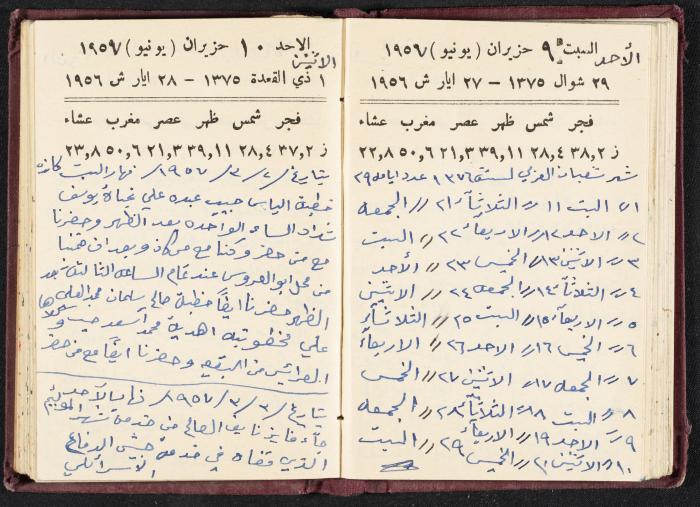 الأحد السبت ٩ حزيران ( يونيو ) ١٩٥٧
٢٩ شوال ١٣٧٥ – ٢٧ ايار ش ١٩٥٦
فجر شمس ظهر عصر مغرب عشاء
ز ٣٨,٢ ٢٨,٤ ٣٩,١١ ٢١,٣ ٥٠,٦ ٢٢,٨
شهر شعبان العربي لسنة ١٣٧٦ عدد ايامه ٢٩
١ // السبت ١١ // الثلاثاء ٢١ // الجمعه
٢ // الاحد ١٢ // الاربعاء ٢٢ // السبت
٣ // الاثنين ١٣ // الخميس ٢٣ // الأحد
٤ // الثلاثاء ١٤ // الجمعه ٢٤ // الاثنين
٥ // الاربعاء ١٥ // السبت ٢٥ // الثلاثاء
٦ // الخميس ١٦ // الاحد ٢٦ // الاربعاء
٧ // الجمعه ١٧ // الاثنين ٢٧ // الخميس
٨ // السبت ١٨ // الثلاثاء ٢٨ // الجمعه
٩ // الاحد ١٩ // الاربعاء ٢٩ // السبت
١٠ // الاثنين ٢٠ // الخميس
الاحد ١٠ حزيران ( يونيو ) ١٩٥٧
الاثنين
١ ذي القعدة ١٣٧٥ – ٢٨ ايار ش ١٩٥٦
فجر شمس ظهر عصر مغرب عشاء
ز ٣٧,٢ ٢٨,٤ ٣٩,١١ ٢١,٣ ٥٠,٦ ٢٣,٨
بتاريخ ٢/٣/١٩٥٧ نهار السبت كانت
خطبة الياس حبيب عبده على نجاة يوسف
شداد الساعه الواحده بعد الظهر وحضرنا
مع من حضر وكنا مع من كان وبعد ان قمنا
من محل ابو العروس عند تمام الساعه الثالثه بعد
الظهر حضرنا ايضًا خطبة صالح سلمان محمد العلي
علي مخطوبته اهدية محمد أسعد
العرائس من البقيعه وحضرنا ايضًا مع من حضر
بتاريخ ٣/٣/١٩٥٧ نهار الاحد
جاء فايز نايف الصالح من خدمة شهر
الذي قضاه في خدمة جيش الدفاع
الاسرائيلي